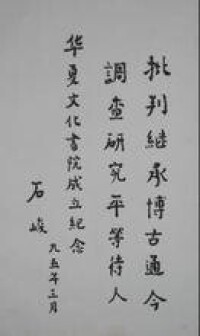 批判继承博古通今
調查研究平等待人
华夏文化書院成立纪念
石峻
九五年三月